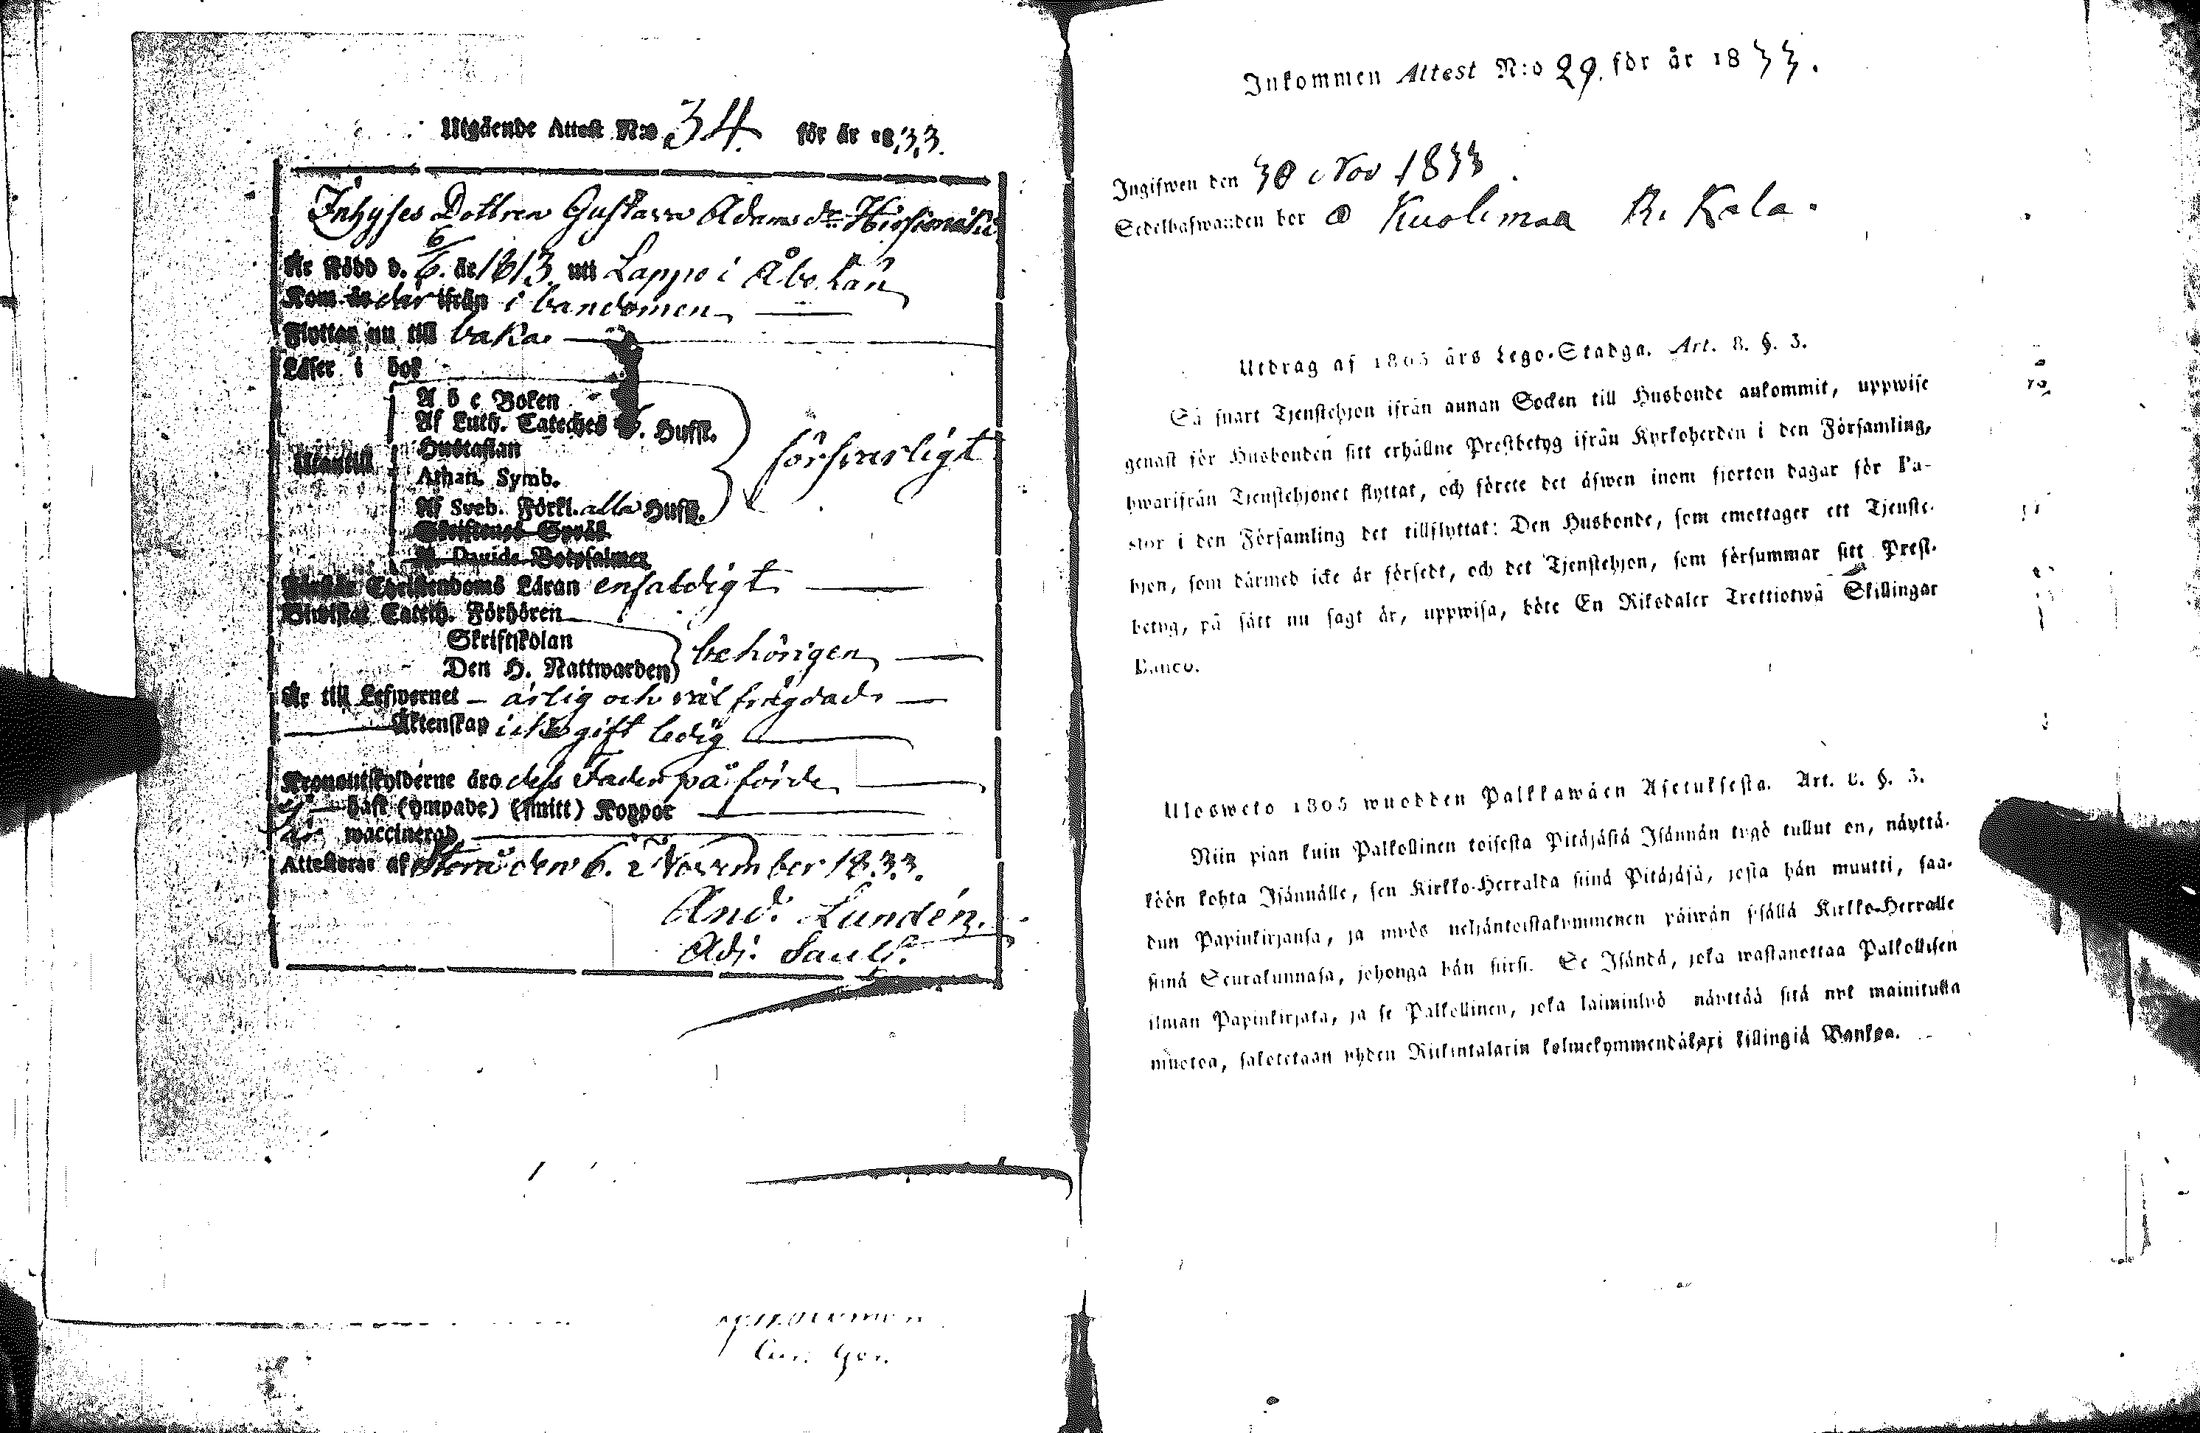 Utgående Attest N:o 34. för år 1833.
Inhyses Dottren Gustava Adams dr
Är Född d. 6/6. år 1813. uti Lappo i Åbo Län
Kom år der ifrån i barndomen
Flyttar nu till baka
Läser i bok
A b c Boken
Af Luth. Cateches Hufst.
Hustaflan
Utantill
Athan. Symb.
försvarligt
Af Sveb. Förkl. alla Hufst.
Skriftenes Språk
Davids Botpsalmer
Förstår Christendoms Läran enfaldigt
Bivistat Catech. Förhören
Skriftskolan
behörigen
Den H. Nattwarden
Är till Lefwernet - ärlig och väl frägdad
Äktenskap icke gift ledig
Kronoutskylderne äro dess Fader påförde
haft (ympade) (smitt) Koppor
är waccinerad
Attesterar af den 6. November 1833.
And: Lundén.
Adj:
Inkommen Attest N:o 29. för år 1833.
Ingifwen den 30 Nov 1833.
Sedelhafwanden bor å Kuolimaa R. Kala.
Utdrag af 1805 års Lego-Stadga. Art. 8. §. 3.
Så snart Tjenstehjon ifrån annan Socken till Husbonde ankommit, uppwise
genast för Husbonden sitt erhållne Prestbetyg ifrån Kyrkoherden i den Församling,
hwarifrån Tjenstehjonet flyttat, och förete det äfwen inom fjorton dagar för Pa-
stor i den Församling det tillflyttat: Den Husbonde, som emottager ett Tjenste-
hjon, som därmed icke är försedt, och det Tjenstehjon, som försummar sitt Prest-
betyg, på sätt nu sagt är, uppwisa, böte En Riksdaler Trettiotwå Skillingar
Banco.
Ulosweto 1805 wuodden Palkkawäen Asetuksesta. Art. 8. §. 3.
Niin pian kuin Palkollinen toisesta Pitäjästä Isännän tygö tullut on, näyttä-
köön kohta Isännälle, sen Kirkko-Herralda siinä Pitäjäsä, josta hän muutti, saa-
dun Papinkirjansa, ja myös neljäntoistakymmenen päiwän sisällä Kirkko-Herralle
siinä Seurakunnasa, johonga hän siirsi. Se Isändä, joka wastanottaa Palkollisen
ilman Papinkirjata, ja se Palkollinen, joka laiminlyö näyttää sitä nyt mainitulla
muotoa, sakotetaan yhden Riikintalarin kolmekymmendäkaxi killingiä Bankoa.